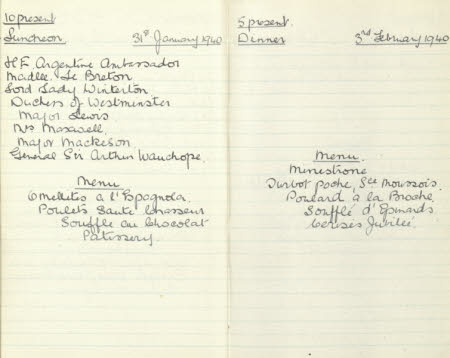 10 present
Luncheon 31st January 1940
H.E. Argentine Ambassador
Madlle. Le Breton
Lord Lady Winterton
Duchess of Westminster
Major Lewis
Mrs Maxwell
Major Mackeson
General Sir Arthur Wauchope.
Menu
Omelettes à l'Espagnola
Poulets Sauté Chasseur
Souffle au Chocolat
Patissery
5 present.
Dinner 3rd February 1940
Menu.
Minestrone
Turbot poche, Sce Moussois.
Poulard à la Broche
Soufflé d'Epinards
Cerises Jubilée